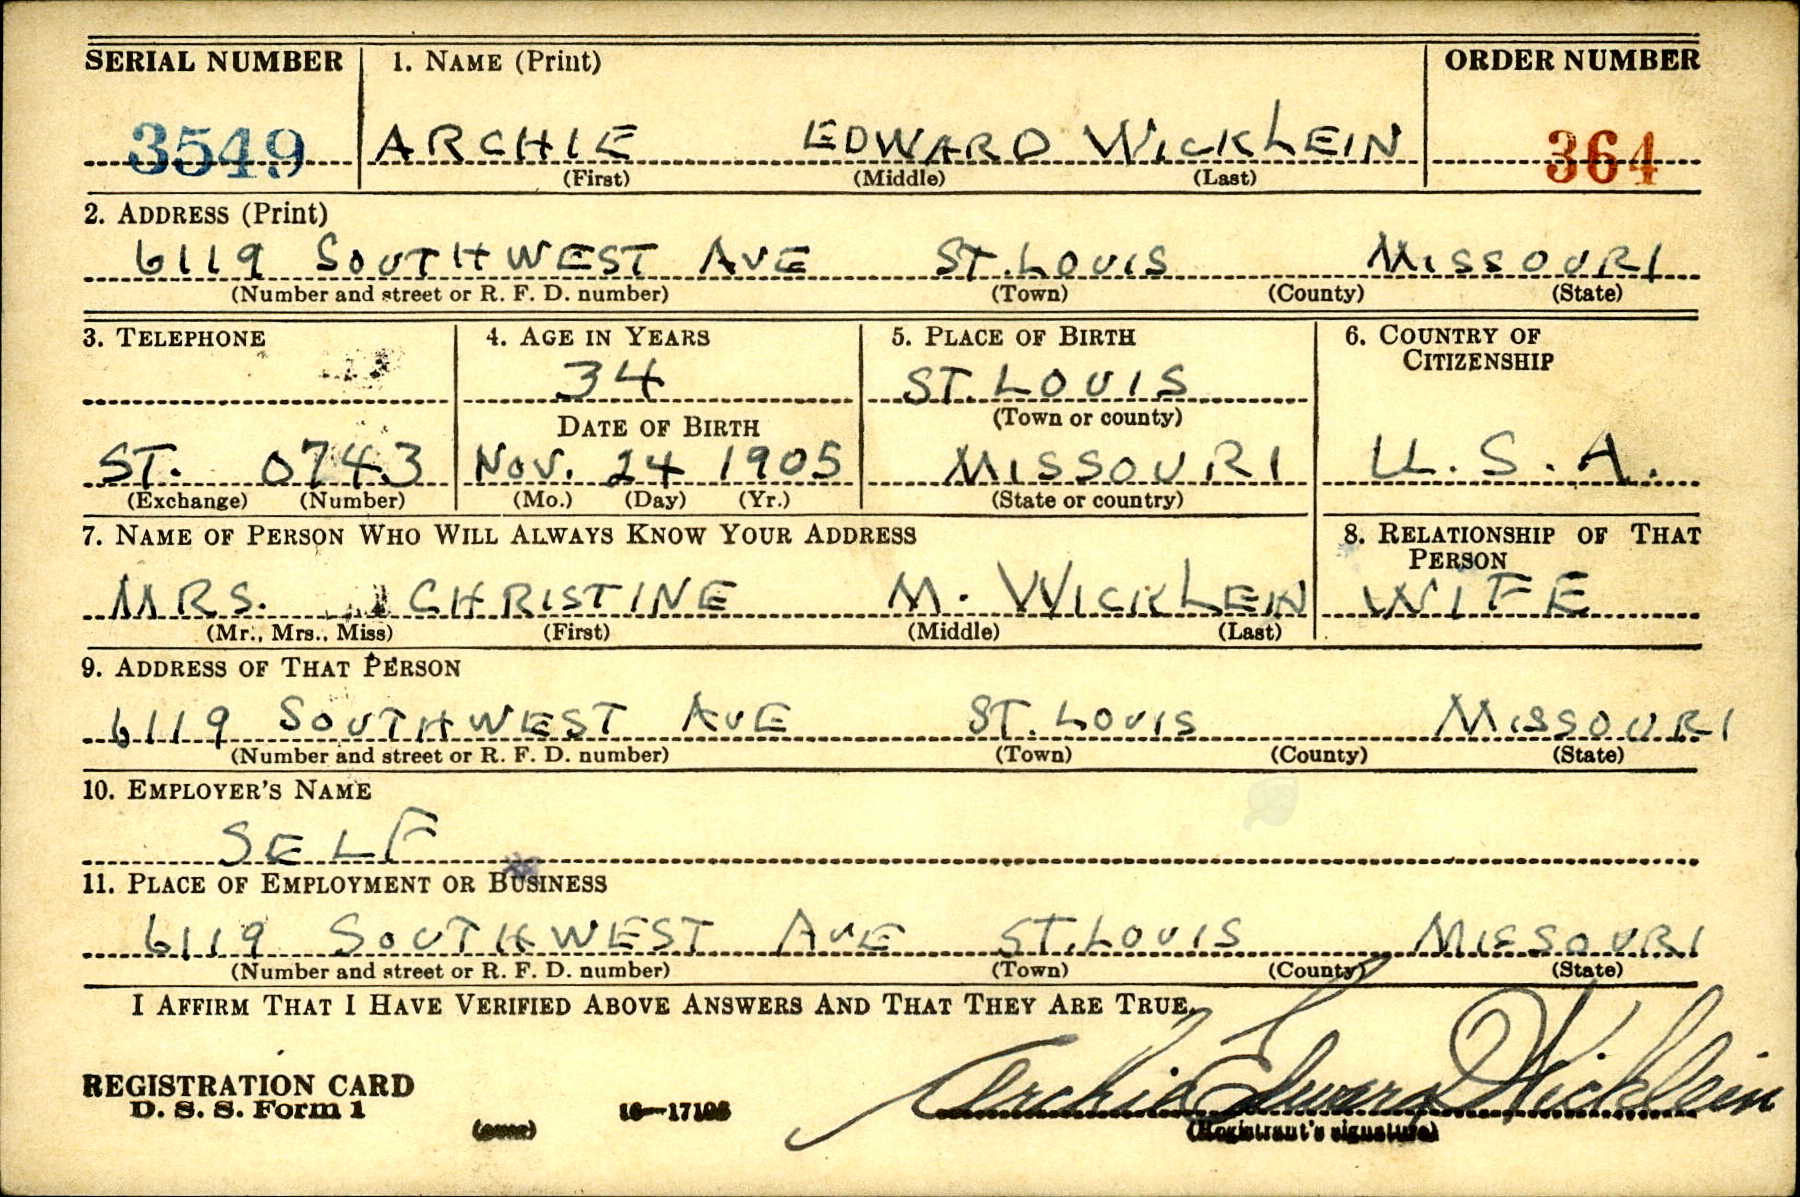 SERIAL NUMBER 1. NAME (Print) ORDER NUMBER
3549 ARCHIE EDWARD WICKLEIN 364
(First) (Middle) (Last)
2. ADDRESS (Print)
6119 SOUTHWEST AVE ST. LOUIS MISSOURI
(Number and street or R. F. D. number) (Town) (County) (State)
3. TELEPHONE 4. AGE IN YEARS 5. PLACE OF BIRTH 6. COUNTRY OF
CITIZENSHIP
34 ST. LOUIS
DATE OF BIRTH (Town or county)
ST. 0743 NOV. 24 1905 MISSOURI U.S.A.
(Exchange) (Number) (Mo.) (Day) (Yr.) (State or country)
7. NAME OF PERSON WHO WILL ALWAYS KNOW YOUR ADDRESS 8. RELATIONSHIP OF THAT
PERSON
MRS. CHRISTINE M. WICKLEIN WIFE
(Mr., Mrs., Miss) (First) (Middle) (Last)
9. ADDRESS OF THAT PERSON
6119 SOUTHWEST AVE ST. LOUIS MISSOURI
(Number and street or R. F. D. number) (Town) (County) (State)
10. EMPLOYER'S NAME
SELF
11. PLACE OF EMPLOYMENT OR BUSINESS
6119 SOUTHWEST AVE ST. LOUIS MISSOURI
(Number and street or R. F. D. number) (Town) (County) (State)
I AFFIRM THAT I HAVE VERIFIED ABOVE ANSWERS AND THAT THEY ARE TRUE.
REGISTRATION CARD Archie Edward Wicklein
D. S. S. Form 1 (over) 16—17105 (Registrant's signature)